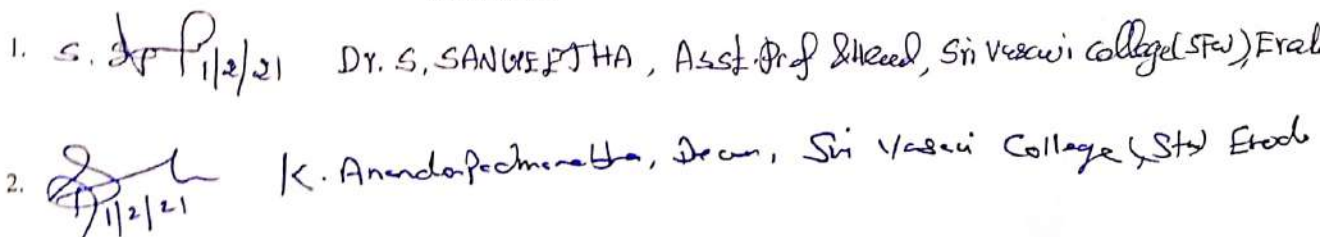 1. S. 1/2/21 Dr. S. SANGEETHA, Asst. Prof & Head, Sri Vasavi College (SFW), Erod
2. 1/2/21 K. Anandapadmanabha, Dean, Sri Vasavi College (SFW) Erode